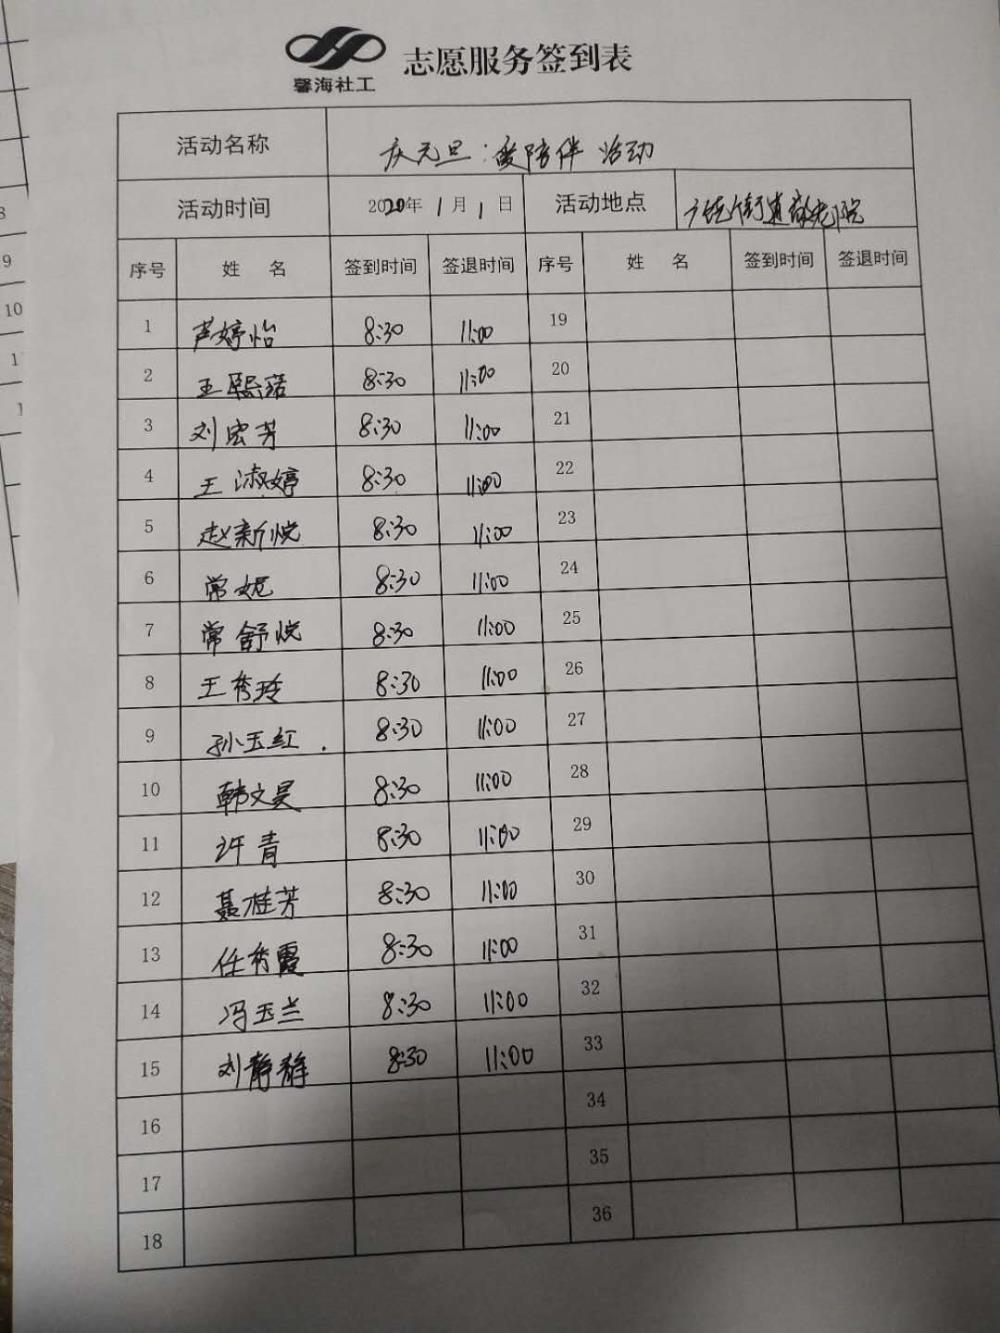 馨海社工
志愿服务签到表
活动名称 庆元旦:爱陪伴 活动
活动时间 2020年 1月 1日 活动地点 街道敬老院
序号 姓 名 签到时间 签退时间 序号 姓 名 签到时间 签退时间
1 芦婷怡 8:30 11:00 19
2 王熙诺 8:30 11:00 20
3 刘宏芳 8:30 11:00 21
4 王淑婷 8:30 11:00 22
5 赵新悦 8:30 11:00 23
6 常妮 8:30 11:00 24
7 常舒悦 8:30 11:00 25
8 王秀玲 8:30 11:00 26
9 孙玉红 . 8:30 11:00 27
10 韩文昊 8:30 11:00 28
11 许青 8:30 11:00 29
12 聂桂芳 8:30 11:00 30
13 任秀霞 8:30 11:00 31
14 冯玉兰 8:30 11:00 32
15 刘静静 8:30 11:00 33
16 34
17 35
18 36
8
9
10